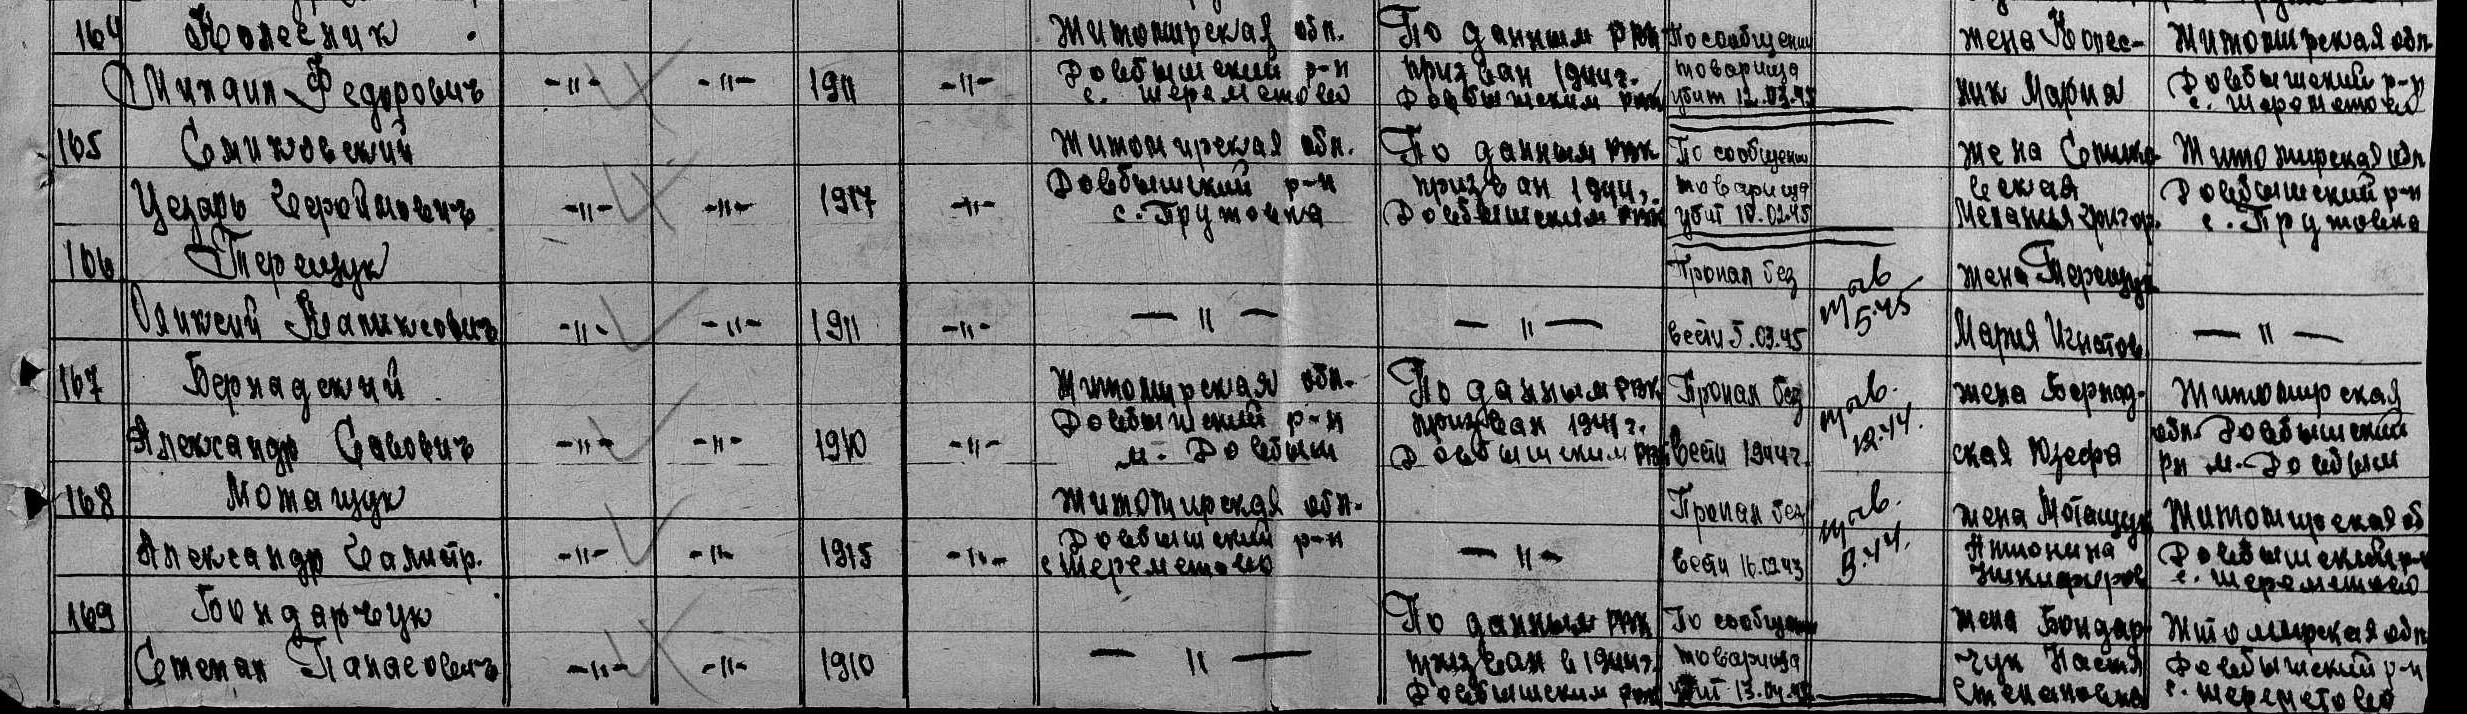 164 Колесник
Михаил Федорович -"- -"- 1911 -"-
Житомирская обл.
Довбышский р-н
с. Шереметово
По данным рвк
призван 1944г.
Довбышским рвк
По сообщении
товарища
убит 12.03.45
жена Колес-
ник Мария
Житомирская обл
Довбышский р-н
с. Шереметово
165 Смиковский
Цезарь Сероймович -"- -"- 1917 -"-
Житомирская обл.
Довбышский р-н
с. Прутовка
По данным рвк
призван 1944г.
Довбышским рвк
По сообщении
товарища
убит 10.02.45
жена Смико
вская
Мелания Григор.
Житомирская обл
Довбышский р-н
с. Прутовка
166 Терещук
Оликсий -"- -"- 1911 -"-
— " —
— " —
Пропал без
вести 5.03.45
5.45
жена Терещук
Мария Игнатов
— " —
167 Бернадский
Александр Савович -"- -"- 1910 -"-
Житомирская обл.
Довбышский р-н
м. Довбыш
По данным рвк
призван 1941г.
Довбышским рвк
Пропал без
вести 1944г.
12.44.
жена Бернад-
ская Юзефа
Житомирская
обл. Довбышский
рн м. Довбыш
168 Мотащук
Александр Салистр. -"- -"- 1915 -"-
Житомирская обл.
Довбышский р-н
с Шереметово
— " —
Пропал без
вести 16.02.43
9.44.
жена Мотащук
Антонина
Никифоров
Житомирская об
Довбышский р-н
с. Шереметово
169 Бондарчук
Степан Панасович -"- -"- 1910
— " —
По данным рвк
призван в 1944г.
Довбышским рвк
По сообщен
товарища
убит 13.04.45
жена Бондар
чук Настя
Степановна
Житомирская обл
Довбышский р-н
с. Шереметово